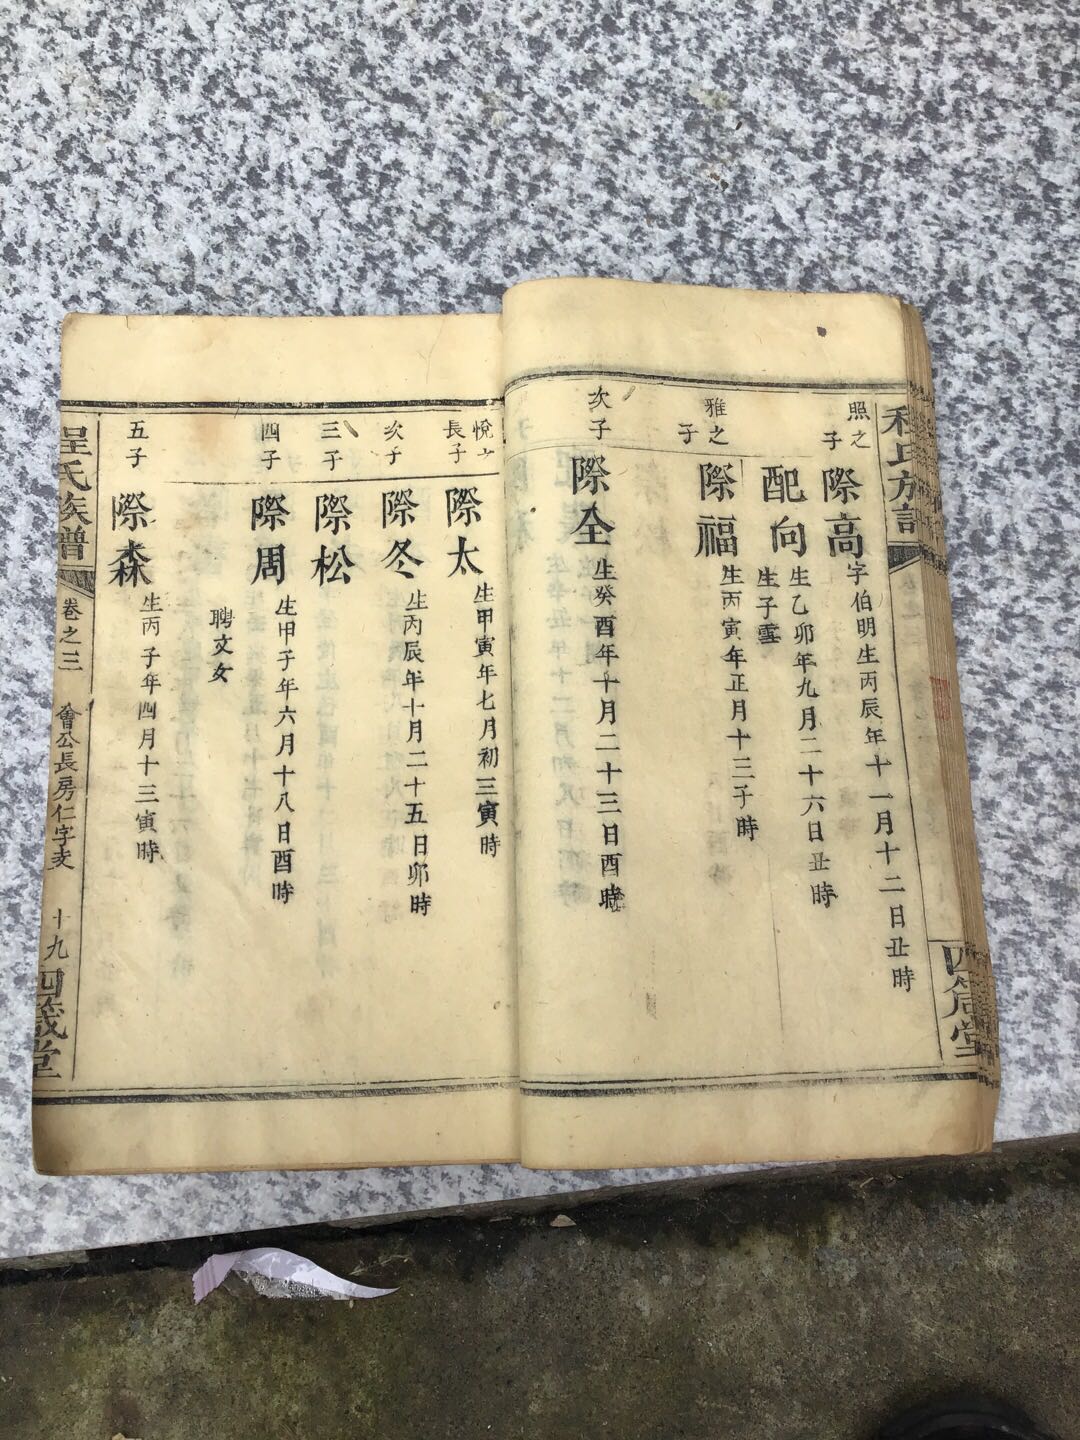 四箴堂
照之子
際高字伯明生丙辰年十一月十二日丑時
配向生乙卯年九月二十六日丑時
生子雲
雅之子
際福生丙寅年正月十三子時
次子
際全生癸酉年十月二十三日酉時
悅之長子
際太生甲寅年七月初三寅時
次子
際冬生丙辰年十月二十五日卯時
三子
際松
四子
際周生甲子年六月十八日酉時
聘文女
五子
際森生丙子年四月十三寅時
程氏族譜
卷之三
會公長房仁字支
十九
四箴堂